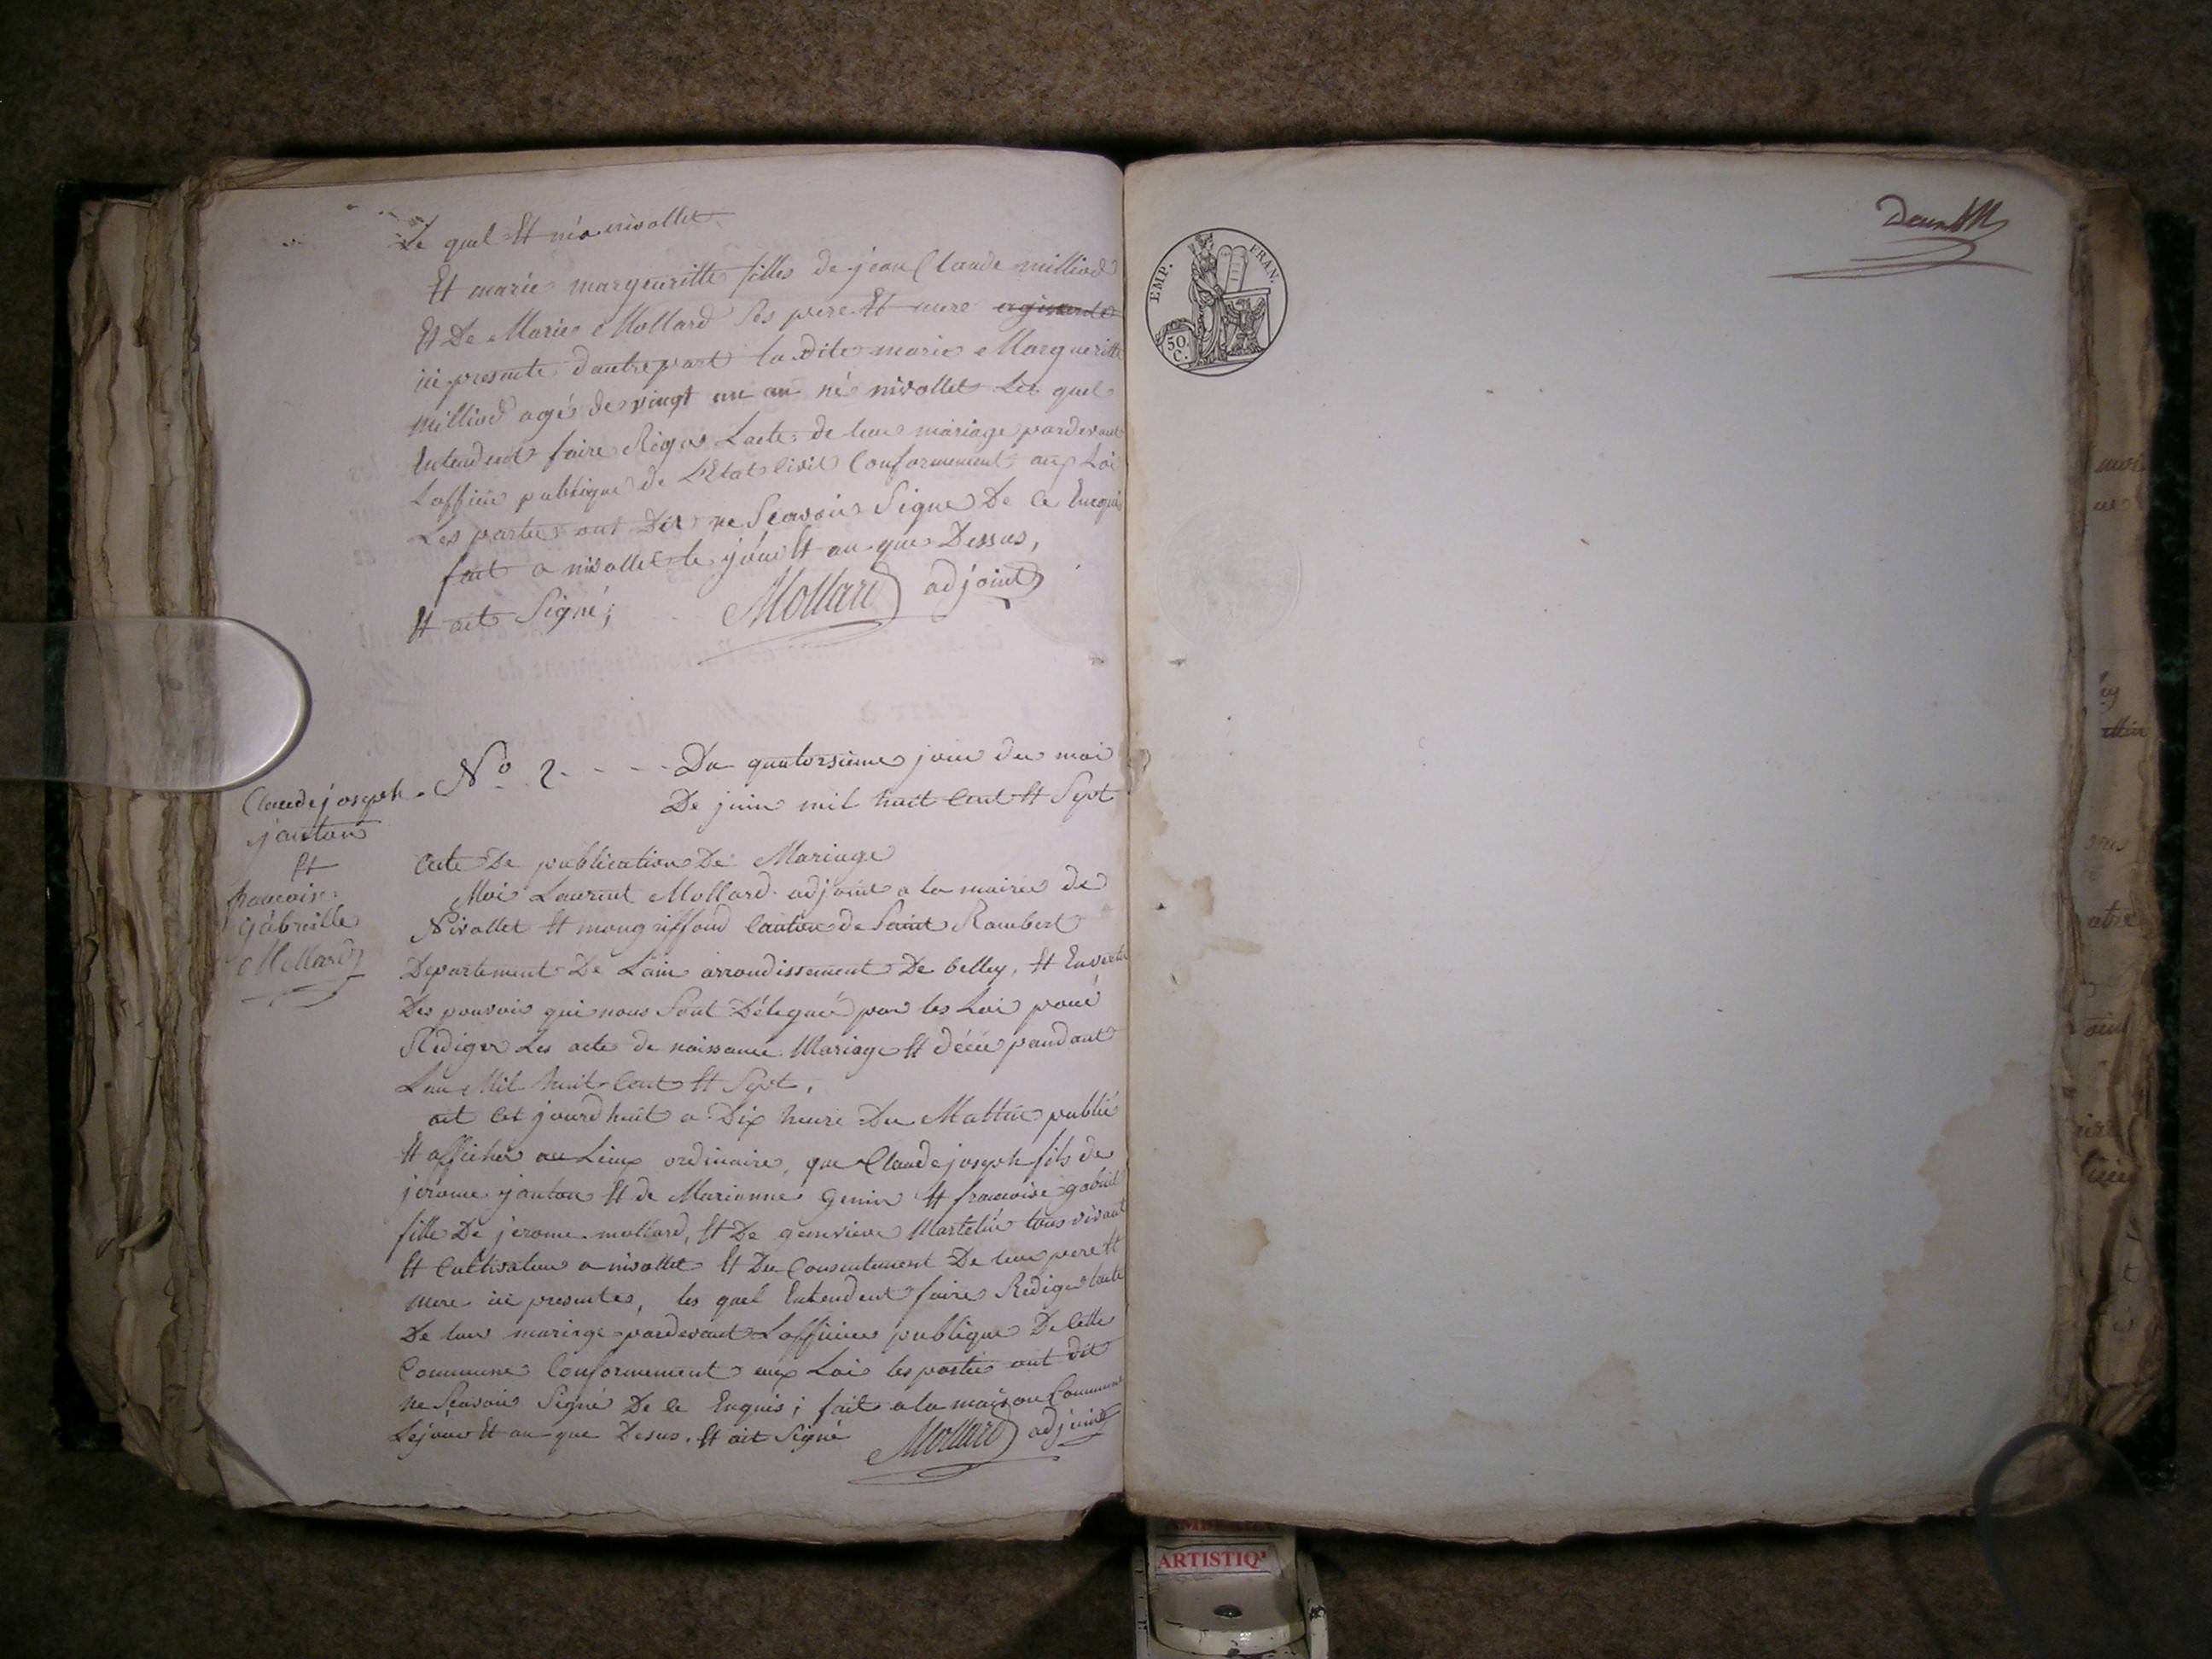 Le quel Et née nivollet
Et marie margueritte filles de jean Claude milliod
Et De Marie Mollard Ses pere Et mere
ici presente dautrepart la dite marie Margueritte
milliod agé de vingt un an né nivollet Les quel
Entendent faire Rédiger Lacte de leur mariage pardevant
Lofficié publique de LEtat Civil Conformement aux Loi
Les partie ont Dit ne Scavoir Signe De Ce Enequis
fait a nivollet le jour Et an que Dessus,
Et ait Signé; Mollard adjoint
Claudejoseph
jantons
Et
francoise
Gabrielle
Mollard
No. 2 - - - - Du quatorsieme jour du moi
De juin mil huit Cent Et Sept
Acte De publication De Mariage
Moi Laurent Mollard adjoint a la mairie de
Nivollet Et mongriffond Canton de Saint Rambert
Departement De Lain arrondissement De belley, Et En vertu
Des pouvoir qui nous Sont Délegué par les Loi pour
Rédiger Les acte de naissance Mariage Et décée pandant
Lan Mil huit Cent Et Sept,
ait Cet jourdhuit a Dix heure Du Mattin publié
Et afficher au Lieux ordinaire, que Claudejoseph fils de
jerome janton Et de Marianne Genin Et francoise gabriel
fille De jerome mollard, Et De genevieve Martelin tous vivant
Et Cultivateur a nivollet Et Du Consentement De leur pere Et
mere ici presentes, les quel Entendent faire Rediger lacte
De leur mariage pardevant Lofficier publique De Cette
Commune Conformement aux Loi les partie ont dit
ne Scavoir Signé De Ce Enquis; fait a la maison Commune
Le jour Et an que Desus. Et ait Signé Mollard adjoint
EMP. FRAN.
50
C.
ARTISTIQ